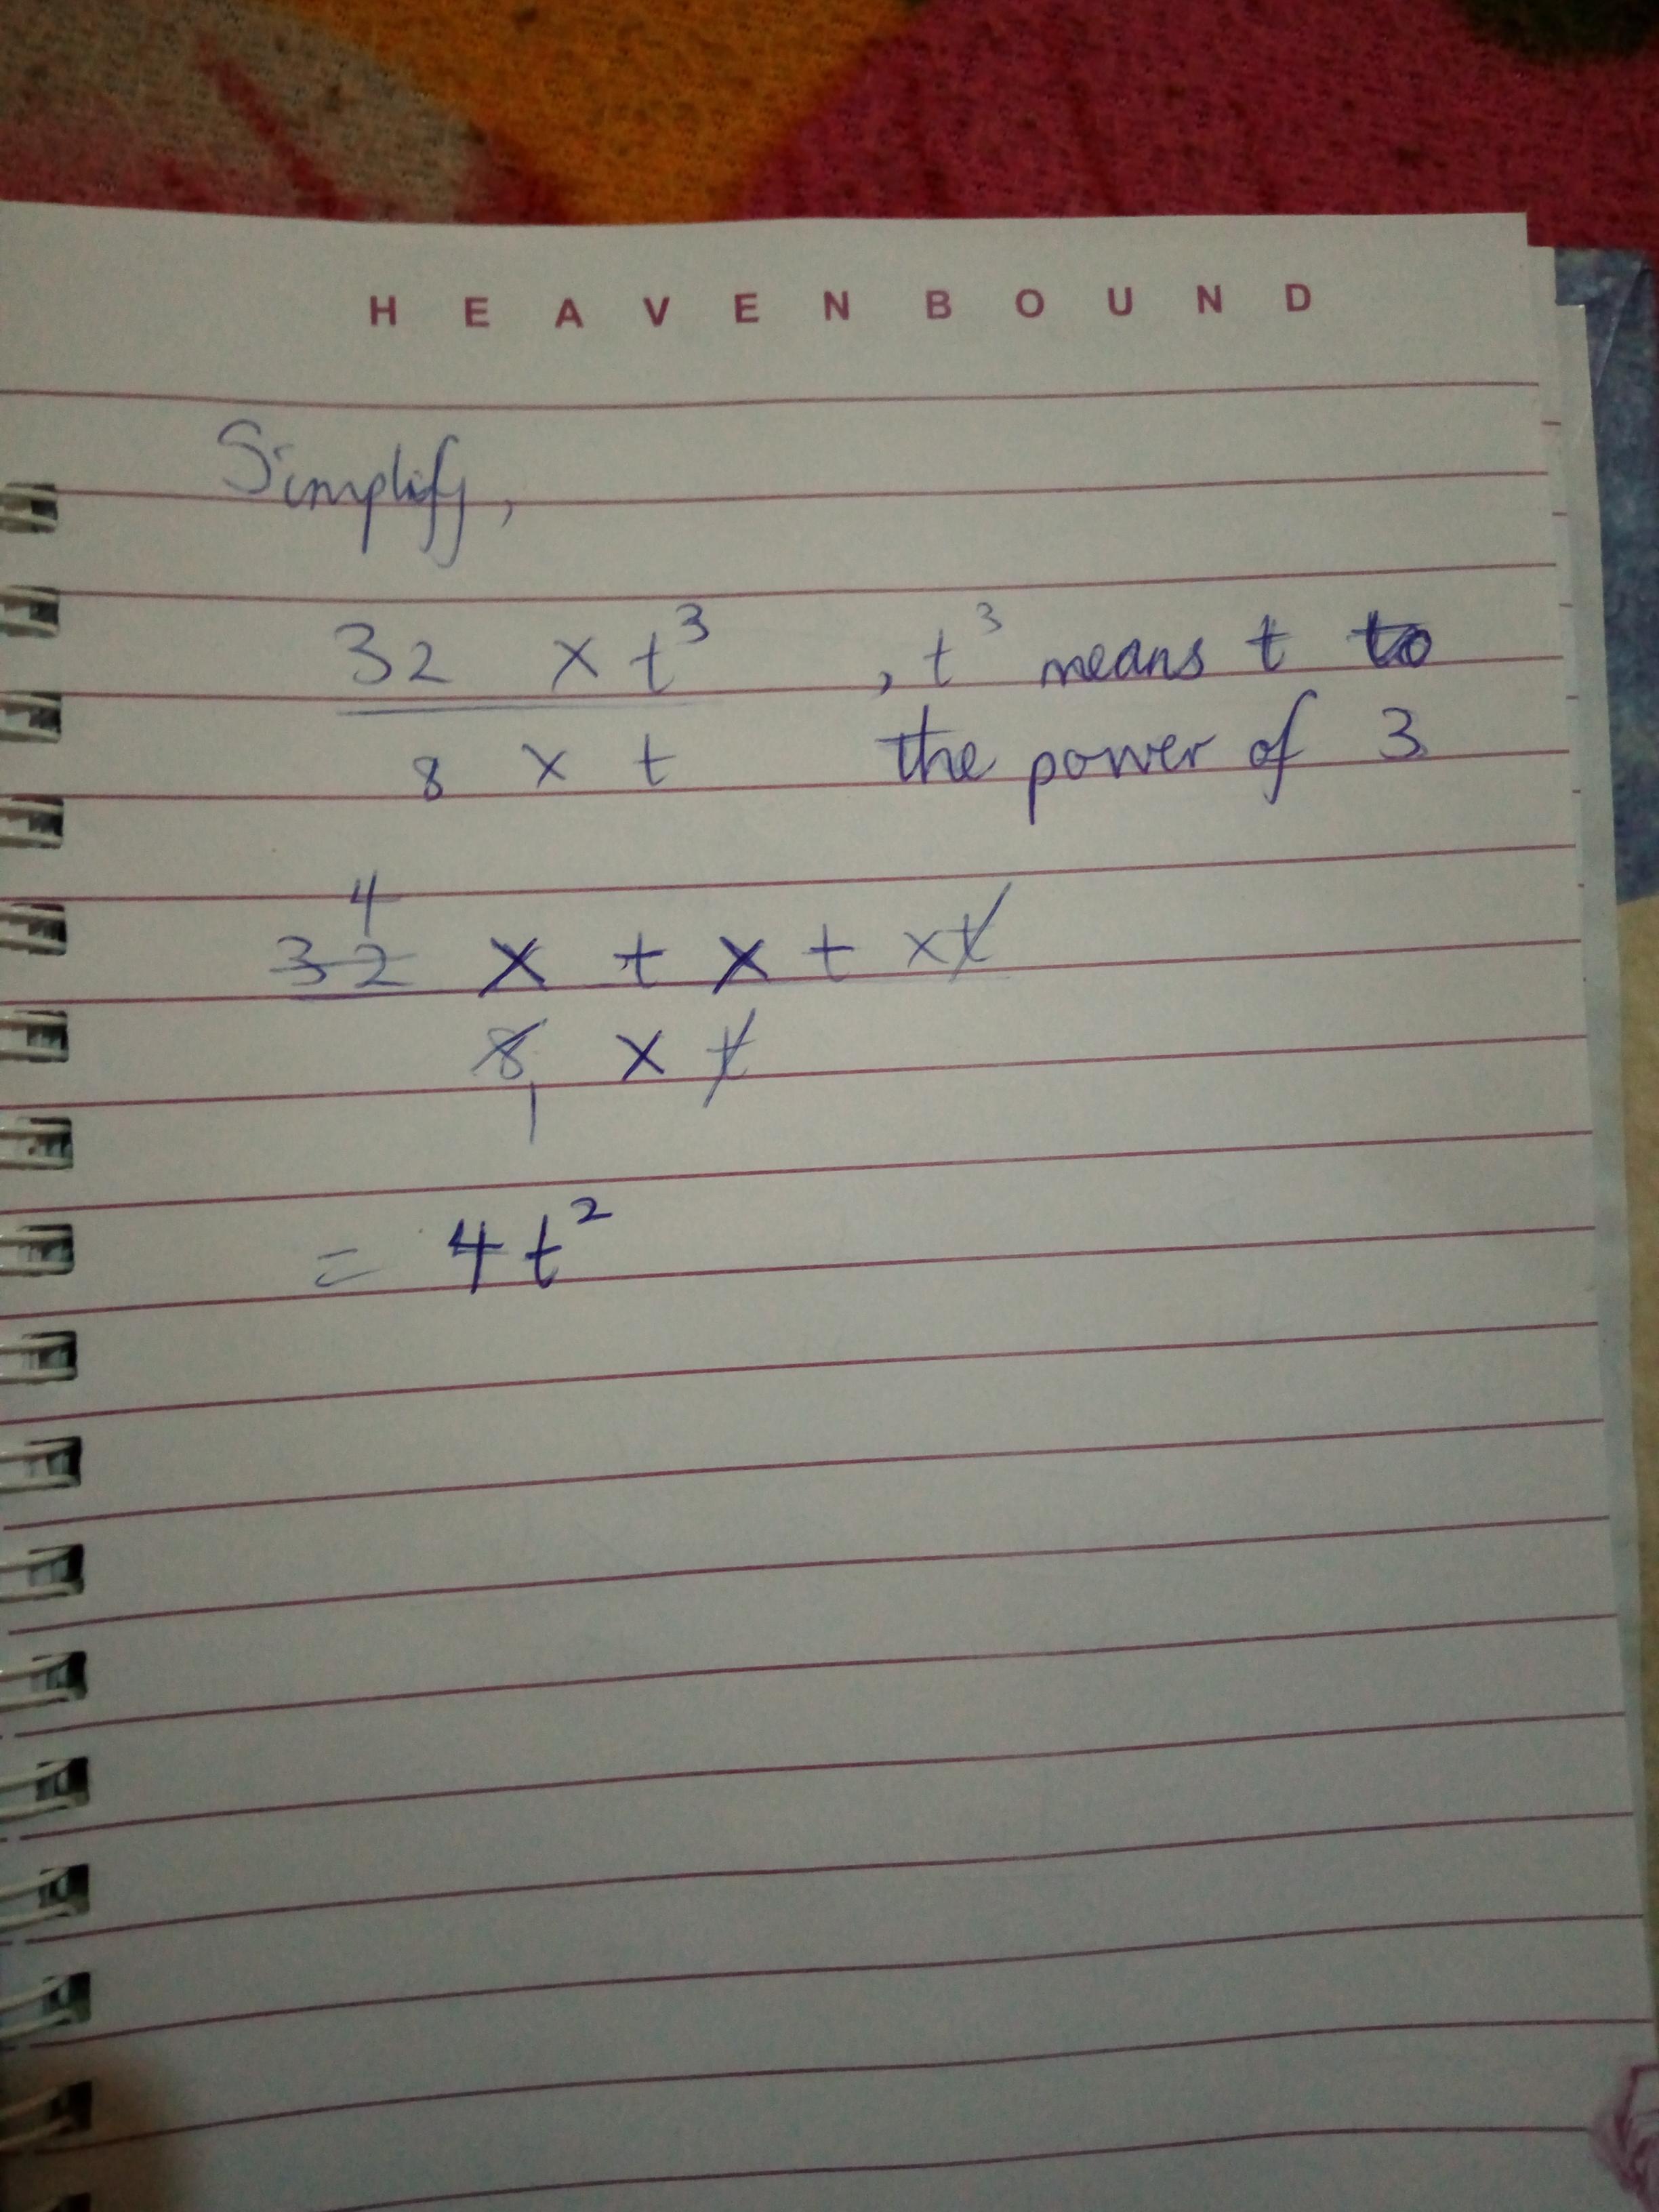 HEAVENBOUND
Simplify,
32 x t³ , t³ means t to
8 x t the power of 3
4
32 x t x t x t
8 x t
1
= 4t²